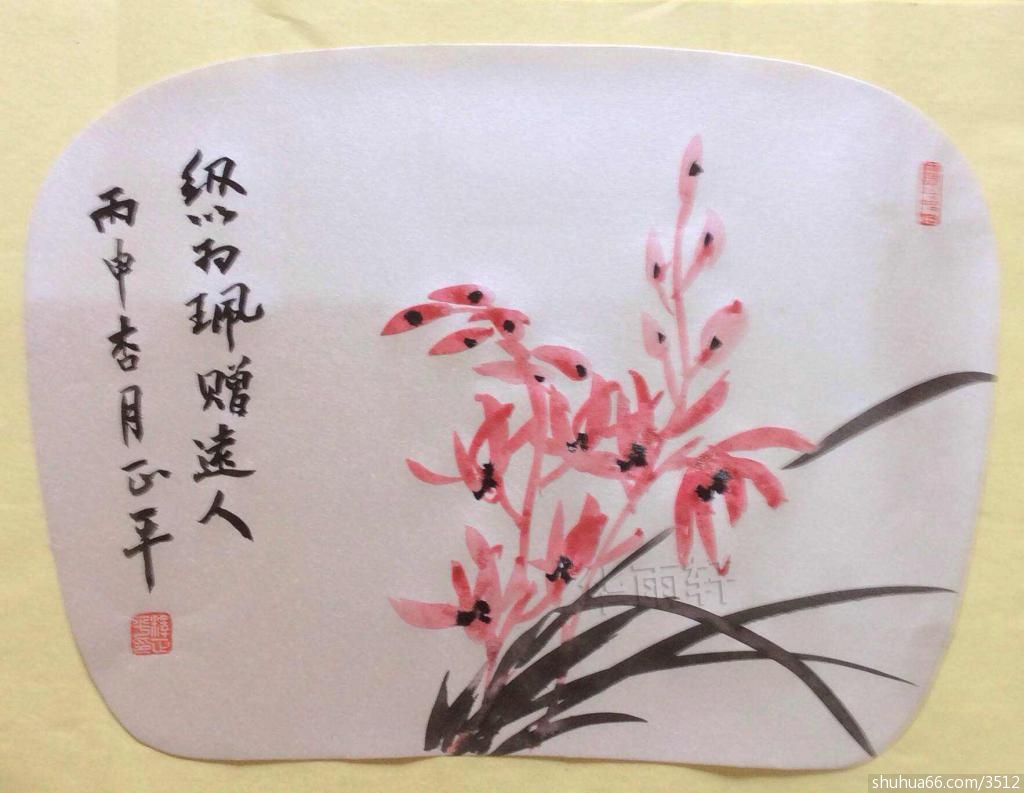 紉以为珮赠遠人
丙申杏月正平
雨轩
shuhua66.com/3512